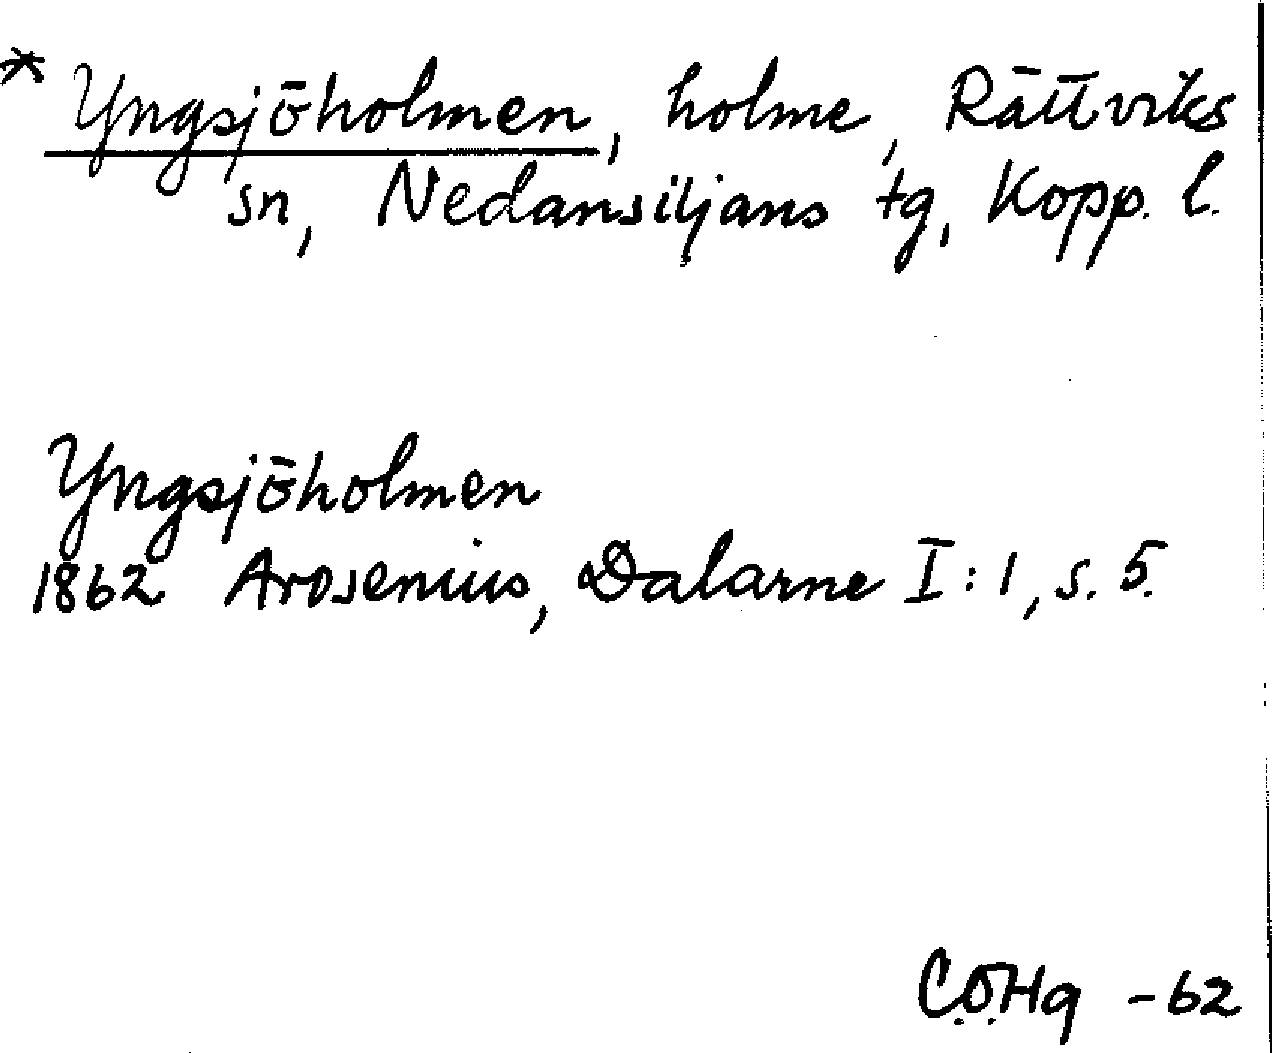 * Yngsjöholmen, holme, Rättviks
sn, Nedansiljans tg, Kopp. l.
Yngsjöholmen
1862 Arosenius, Dalarne I:1, s. 5.
C.Ö.Hg -62